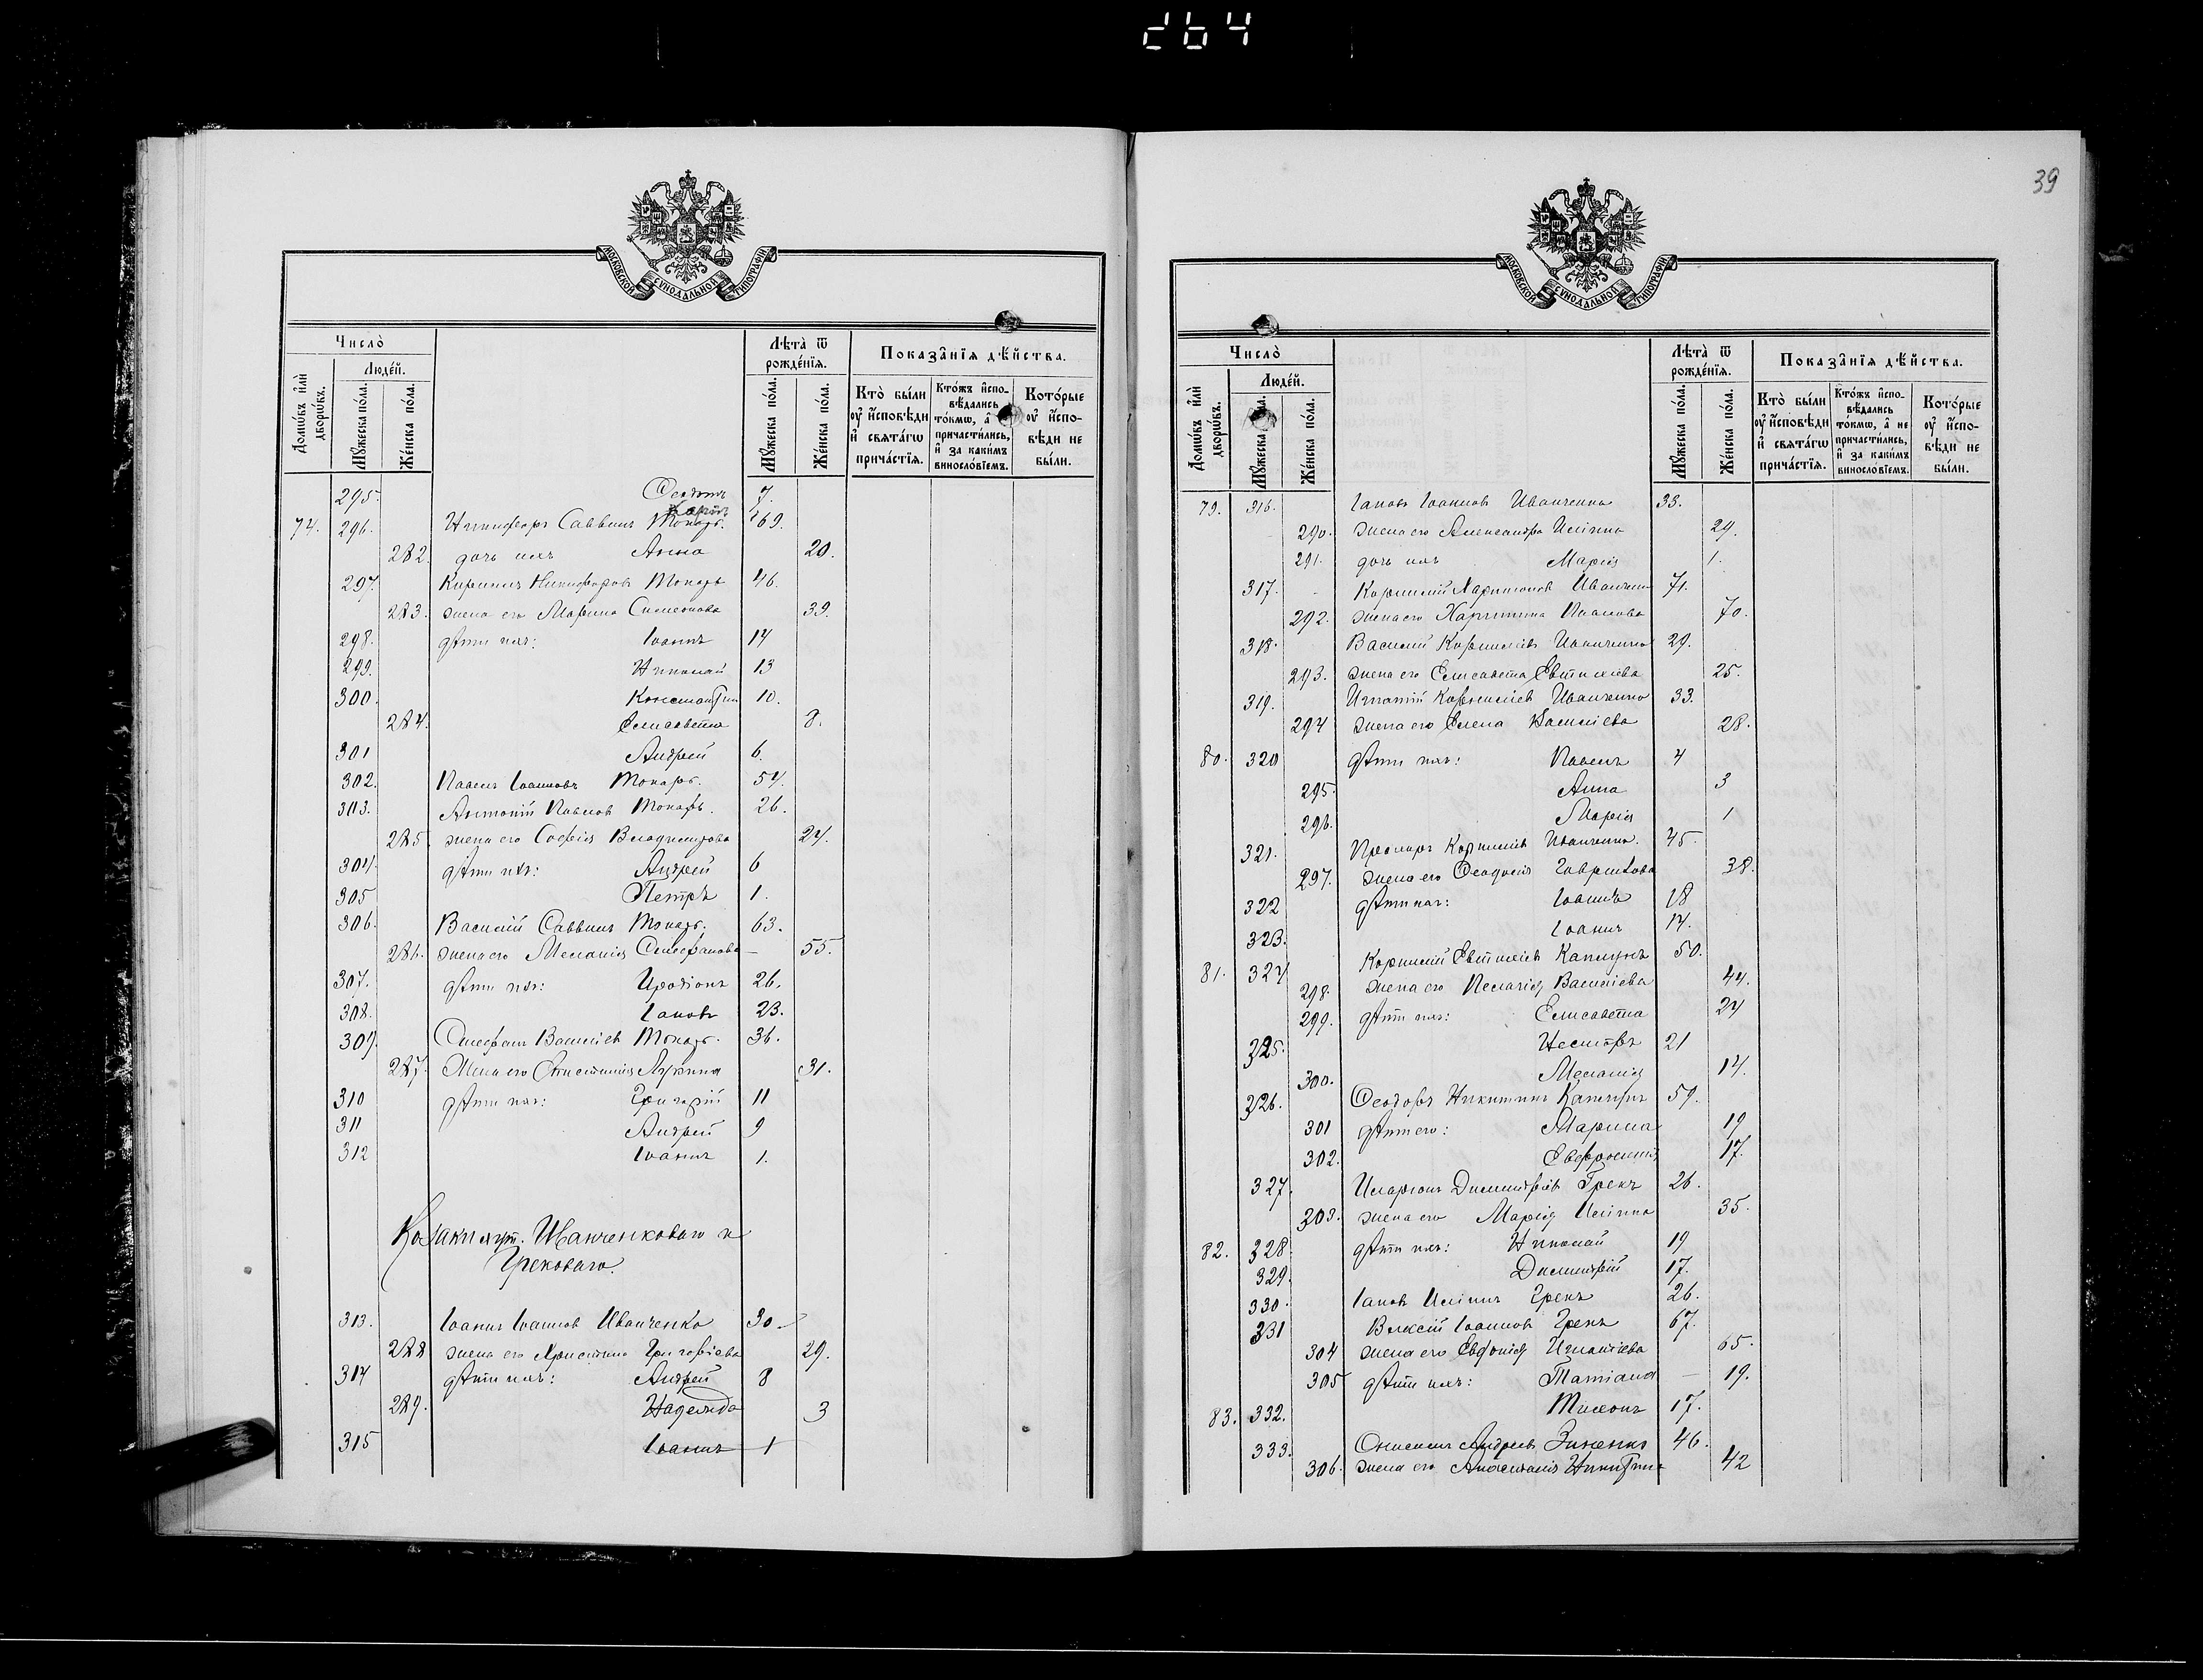 264
МОСКОВСКОЙ СѴНОДАЛЬНОЙ ТИПОГРАФІИ
Число̀
Людéй.
Домѡ́въ и҆лѝ дворѡ́въ.
Мꙋ́жеска по́ла.
Же́нска по́ла.
Лѣ́та ѿ рожде́нїѧ.
Мꙋ́жеска по́ла.
Же́нска по́ла.
Показа̑нїѧ дѣ́йства.
Кто̀ бы́ли ᲂу҆ и҆́сповѣди и҆ свѧта́гѡ прича́стїѧ.
Кто́жъ и҆спо-вѣ́дались то́кмѡ, а҆ не причасти́лись, и҆ за каки́мъ винослѡ́вїемъ.
Кото́рые ᲂу҆ и҆́спо-вѣди не бы́ли.
295. Ѳеодотъ 7.
74. 296. Никифоръ Саввинъ Токарь. 69.
282. дочь ихъ Анна 20.
297. Кириллъ Никифоровъ Токарь 46.
283. жена его Марина Симеонова 39.
298. дѣти ихъ: Іоаннъ 14
299. Николай 13
300. Константин 10.
284. Елисавета 8.
301 Андрей 6.
302. Павелъ Іоанновъ Токарь. 54.
303. Антоній Павлов Токарь. 26.
285. жена его Софія Владимірова 24.
304. дѣти ихъ: Андрей 6
305 Петръ 1.
306. Василій Саввинъ Токарь. 63.
286. жена его Меланія Стефанова — 55.
307. дѣти ихъ: Иродіонъ 26.
308. Іаковъ 23.
309. Стефанъ Василіев Токарь. 36.
287. Жена его 31.
310 дѣти ихъ: Григорій 11
311 Андрей 9
312 Іоаннъ 1.
Козаки хут. Иванченковаго и
Грековаго.
313. Іоаннъ Іоаннов Иванченко 30
288 жена его Христина Григоріева 29.
314 дѣти ихъ: Андрей 8
289. Надежда 3
315 Іоаннъ 1
39
МОСКОВСКОЙ СѴНОДАЛЬНОЙ ТИПОГРАФІИ
Число̀
Людéй.
Домѡ́въ и҆лѝ дворѡ́въ.
Мꙋ́жеска по́ла.
Же́нска по́ла.
Лѣ́та ѿ рожде́нїѧ.
Мꙋ́жеска по́ла.
Же́нска по́ла.
Показа̑нїѧ дѣ́йства.
Кто̀ бы́ли ᲂу҆ и҆́сповѣди и҆ свѧта́гѡ прича́стїѧ.
Кто́жъ и҆спо-вѣ́дались то́кмѡ, а҆ не причасти́лись, и҆ за каки́мъ винослѡ́вїемъ.
Кото́рые ᲂу҆ и҆́спо-вѣди не бы́ли.
79. 316. Іаковъ Іоаннов Иванченко 33.
290. жена его Александра Иліина 29.
291. дочь ихъ Марія 1.
317. Корнилій Харитонов Иванченко 71.
292. жена его Харитина Иванова 70.
318. Василій Корниліев Иванченко 29.
293. жена его Елисавета Евтихіева 25.
319. Игнатій Корниліев Иванченко 33.
294 жена его Елена Василіева 28.
80. 320 дѣти ихъ: Павелъ 4
295. Анна 3
296. Марія 1
321. Прохоръ Корниліев Иванченко. 45.
297. жена его Ѳеодосія Гаврилова 38.
322 дѣти ихъ: Іоаннъ 18
323. Іоаннъ 14.
81. 324 Корнилій Евтихіев Каплунъ 50.
298. жена его Пелагія Василіева 44.
299. дѣти ихъ: Елисавета 24
325. Несторъ 21
300. Меланія 14.
326. Ѳеодоръ Никитинъ Каплунъ 59.
301 дѣти его: Марина 19
302. Евфросинія 17.
327. Иларіонъ Димитріев Грекъ 26.
303. жена его Марія Иліина 35.
82. 328. дѣти ихъ: Николай 19
329. Димитрій 17.
330. Іаков Иліинъ Грекъ 26.
331 Алексій Іоаннов Грекъ 67.
304 жена его Евдокія Игнатіева 65.
305 дѣти ихъ: Татіана — 19.
83. 332. Тихонъ 17.
333. Онисимъ Андреев Зинченко 46.
306. жена его Анастасія Никитина 42